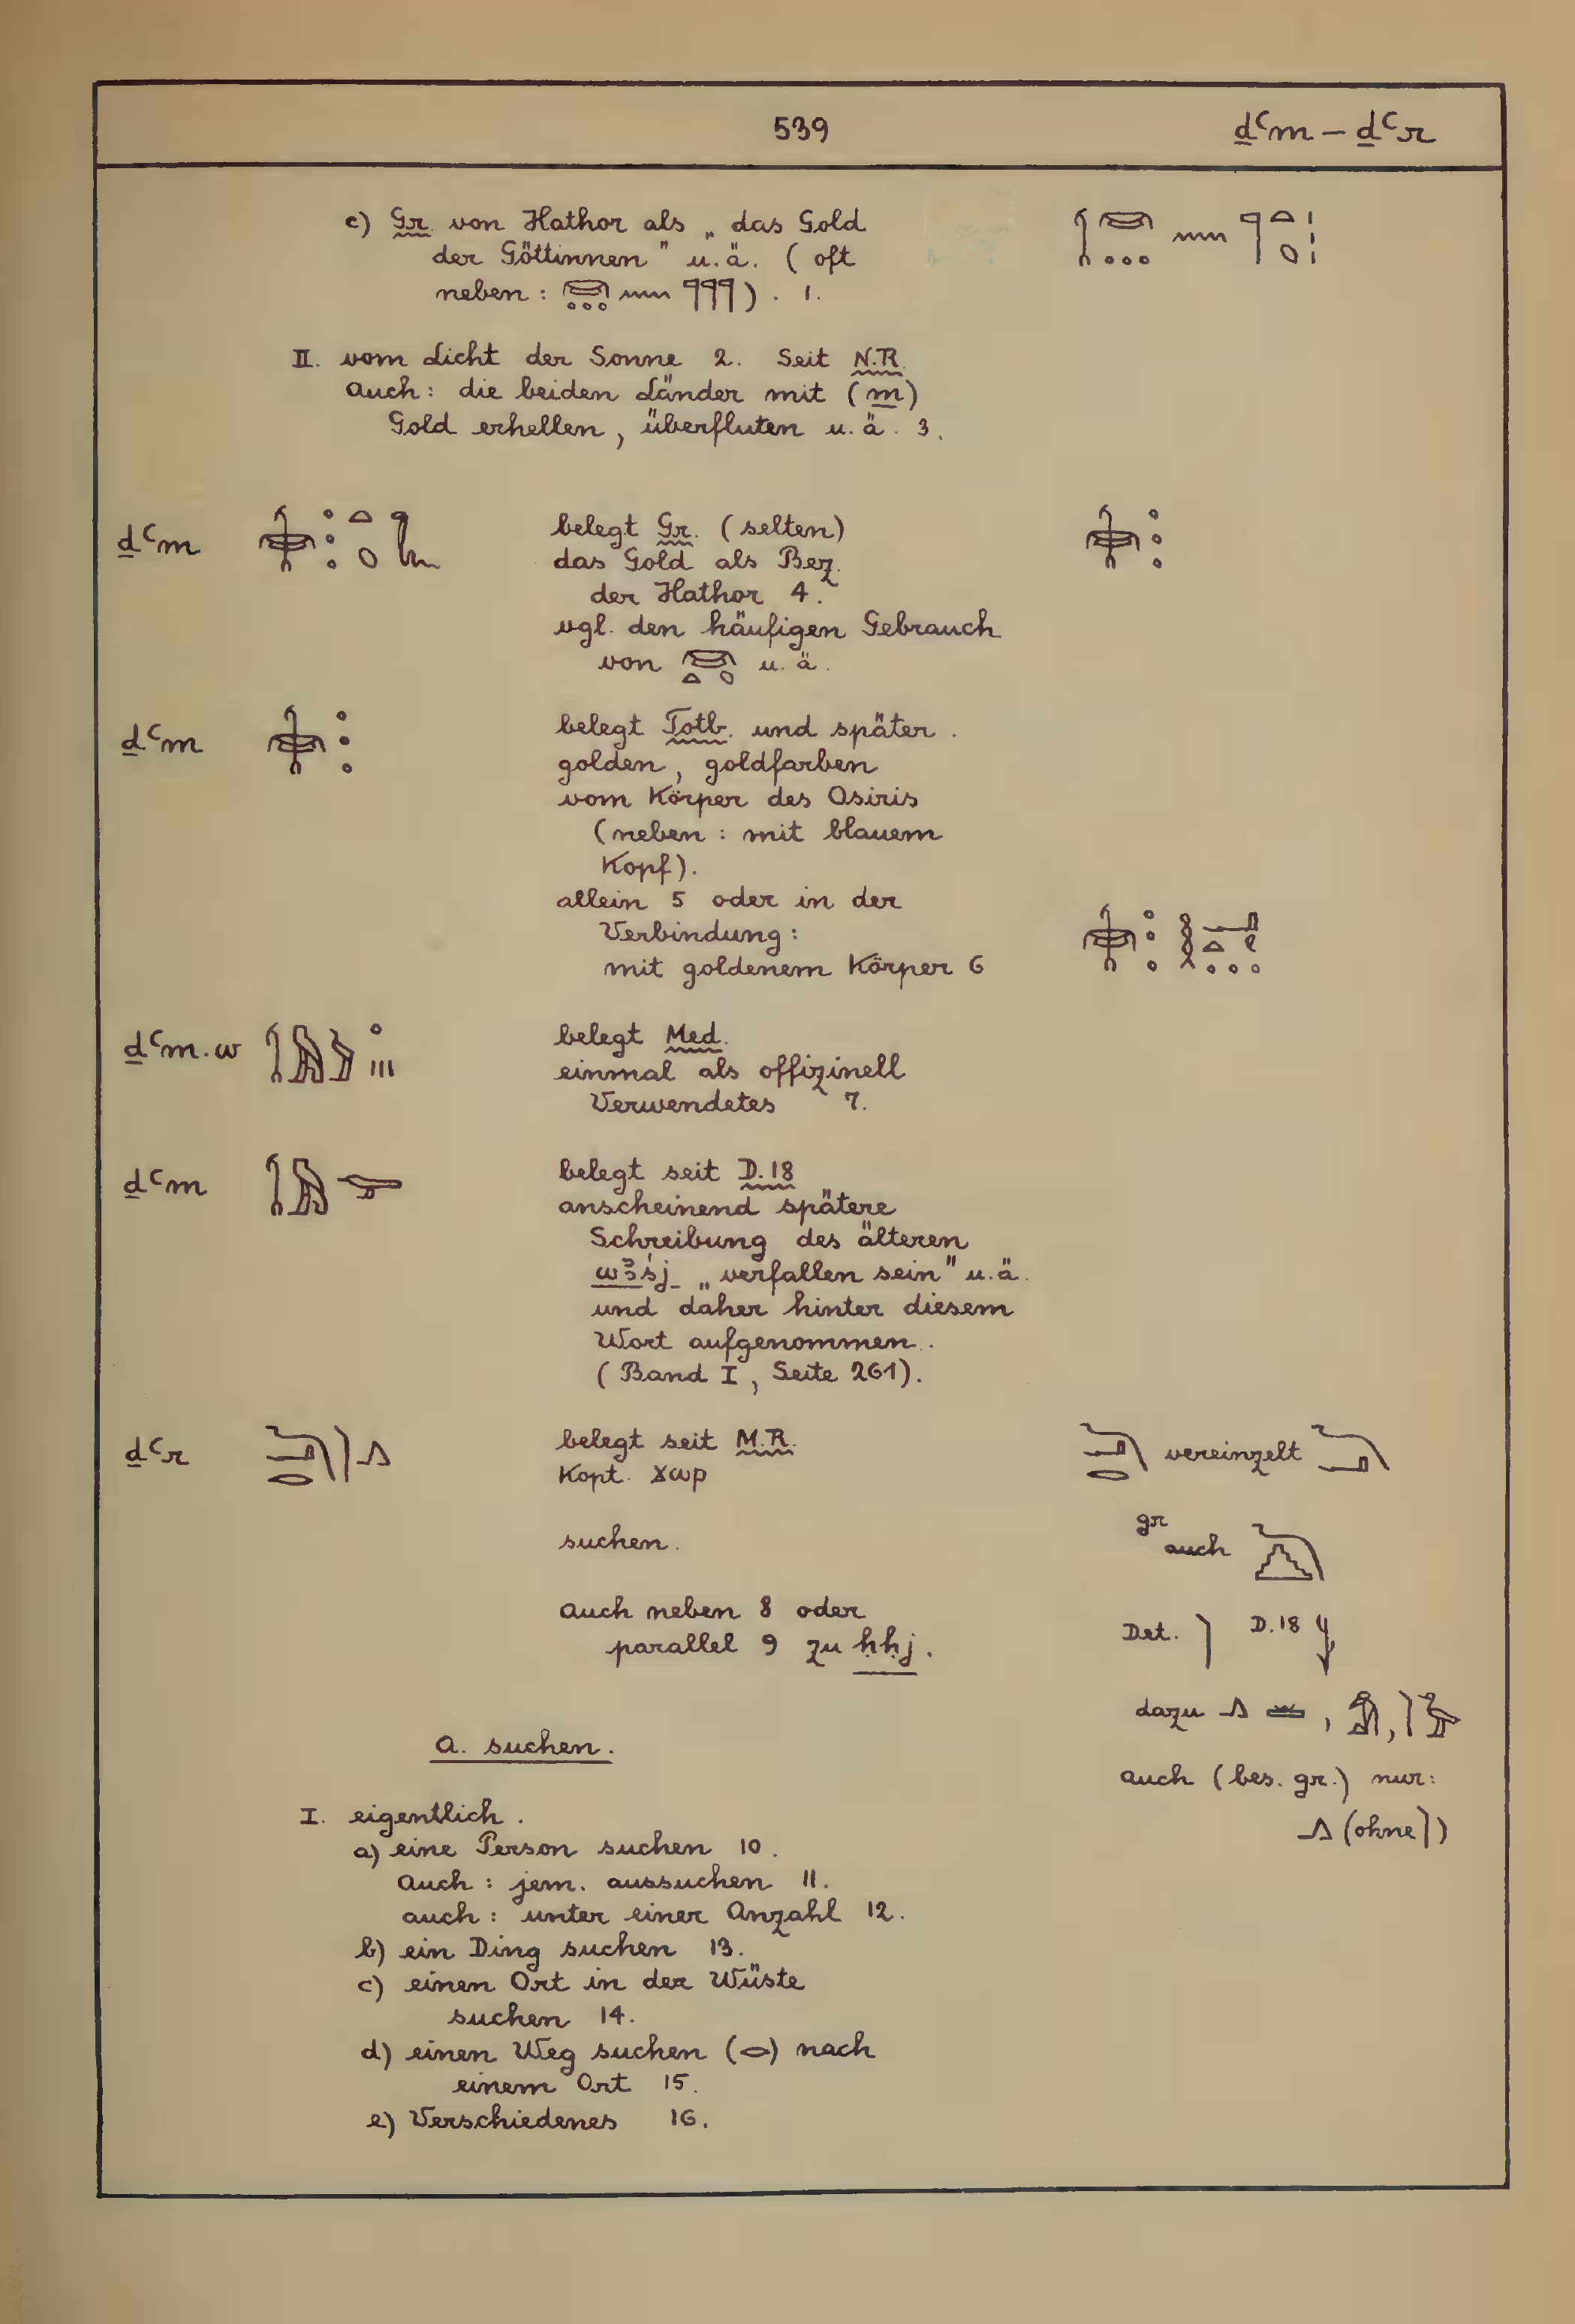 539
ḏꜥm – ḏꜥr
c) Gr. von Hathor als „das Gold
der Göttinnen" u.ä. (oft
neben: ) . 1.
II. vom Licht der Sonne 2. Seit N.R.
Auch: die beiden Länder mit (m)
Gold erhellen, überfluten u.ä. 3.
ḏꜥm
belegt Gr. (selten)
das Gold als Bez.
der Hathor 4.
vgl. den häufigen Gebrauch
von u.ä.
ḏꜥm
belegt Totb. und später.
golden, goldfarben
vom Körper des Osiris
(neben: mit blauem
Kopf).
allein 5 oder in der
Verbindung:
mit goldenem Körper 6
ḏꜥm.w
belegt Med.
einmal als offizinell
Verwendetes 7.
ḏꜥm
belegt seit D.18
anscheinend spätere
Schreibung des älteren
wꜣśj „verfallen sein" u.ä.
und daher hinter diesem
Wort aufgenommen.
(Band I, Seite 261).
ḏꜥr
belegt seit M.R.
Kopt. ϫⲱⲣ
suchen.
Auch neben 8 oder
parallel 9 zu ḥḥj.
vereinzelt
gr
auch
Det. D.18
dazu , ,
auch (bes. gr.) nur:
(ohne )
A. suchen.
I. eigentlich.
a) eine Person suchen 10.
Auch: jem. aussuchen 11.
auch: unter einer Anzahl 12.
b) ein Ding suchen 13.
c) einen Ort in der Wüste
suchen 14.
d) einen Weg suchen (𓂋) nach
einem Ort 15.
e) Verschiedenes 16.